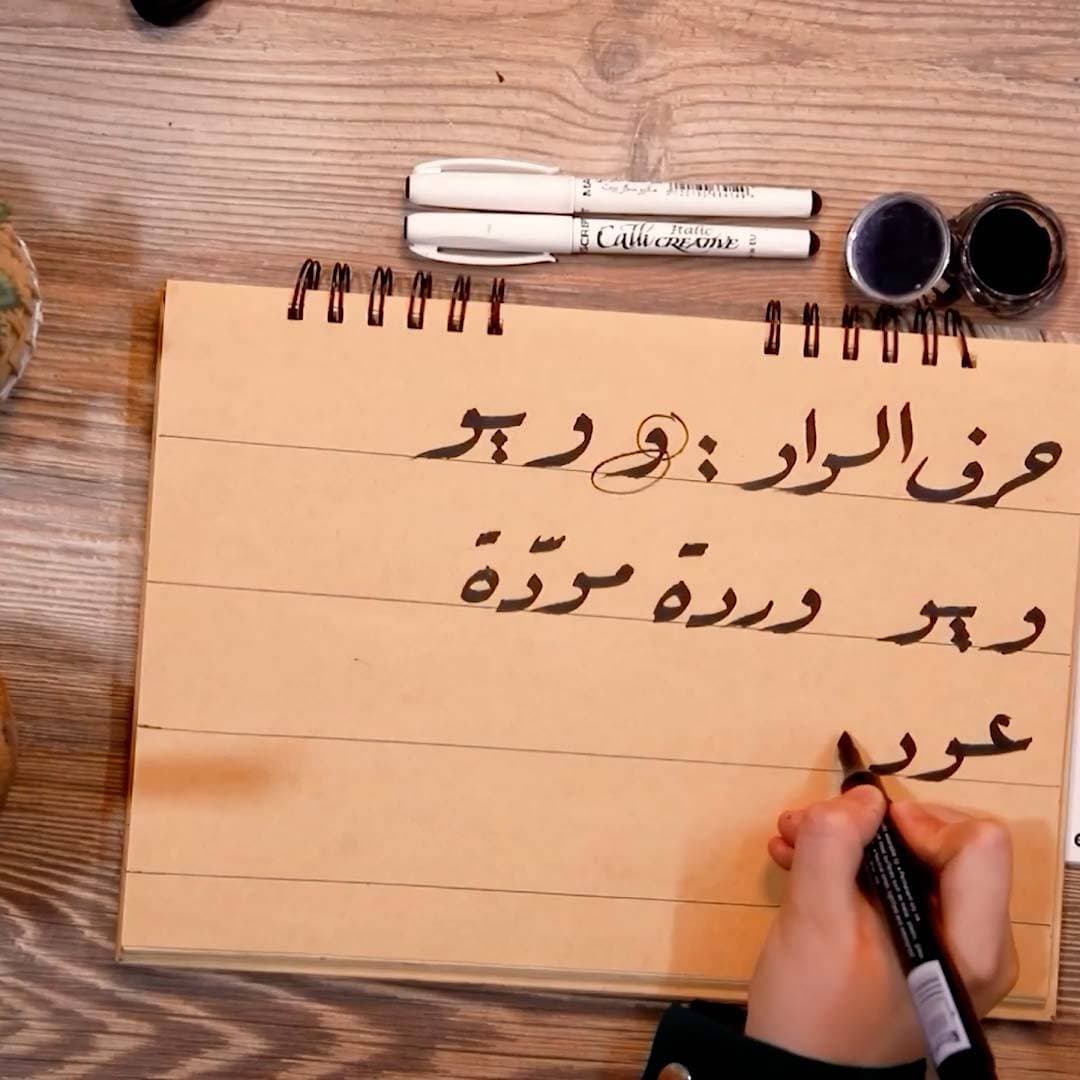 Italic
Calli CREATIVE
حرف الواو : و و يو
و يو وردة مودّة
عود